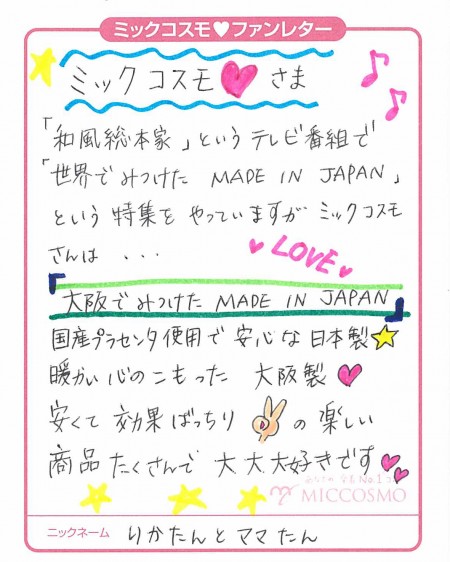 ミックコスモ♥ファンレター
ミックコスモ♥さま
「和風総本家」というテレビ番組で
「世界でみつけた MADE IN JAPAN」
という特集をやっていますがミックコスモ
さんは ...
♥LOVE♥
『大阪でみつけた MADE IN JAPAN』
国産プラセンタ使用で安心な日本製☆
暖かい心のこもった 大阪製♥
安くて効果ばっちり✌の楽しい
商品たくさんで大大大好きです♥♥
MICCOSMO
ニックネーム りかたんとママたん